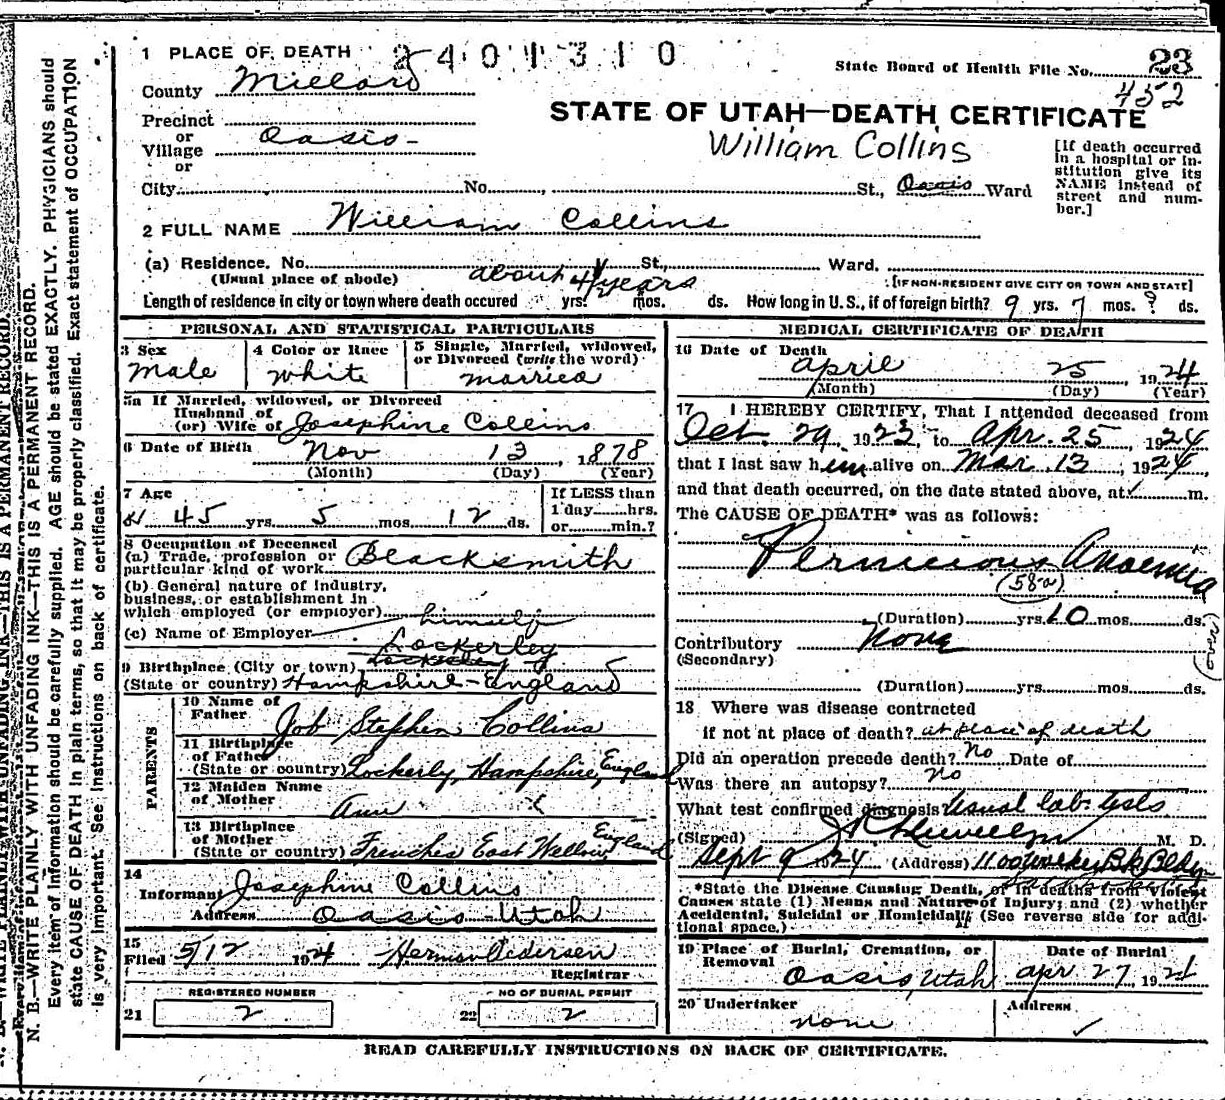 1 PLACE OF DEATH 2401310
State Board of Health File No. 23
452
County Millard
STATE OF UTAH—DEATH CERTIFICATE
William Collins
Precinct
or
Village Oasis
or
City No. St., Oasis Ward
[If death occurred in a hospital or institution give its NAME instead of street and number.]
2 FULL NAME William Collins
(a) Residence. No. St., Ward.
(Usual place of abode)
[IF NON-RESIDENT GIVE CITY OR TOWN AND STATE]
about 4½ years
Length of residence in city or town where death occured yrs. mos. ds. How long in U.S., if of foreign birth? 9 yrs. 7 mos. ? ds.
PERSONAL AND STATISTICAL PARTICULARS
3 Sex
Male
4 Color or Race
white
5 Single, Married, widowed, or Divorced (write the word)
married
5a If Married, widowed, or Divorced
Husband of
(or) Wife of Josephine Collins
6 Date of Birth Nov 13 1878
(Month) (Day) (Year)
7 Age
45 yrs. 5 mos. 12 ds.
If LESS than
1 day hrs.
or min.?
8 Occupation of Deceased
(a) Trade, profession or
particular kind of work Blacksmith
(b) General nature of industry,
business, or establishment in
which employed (or employer) himself
(c) Name of Employer
Lockerley
9 Birthplace (City or town) Lockerley
(State or country) Hampshire-England
PARENTS
10 Name of
Father Job Stephen Collins
11 Birthplace
of Father
(State or country) Lockerly, Hampshire, England
12 Maiden Name
of Mother Ann
13 Birthplace
of Mother
(State or country) Frenches East Wellow England
14
Informant Josephine Collins
Address Oasis-Utah
15
Filed 5/12 1924 Herman Pedersen
Registrar
REGISTERED NUMBER
21 2
NO OF BURIAL PERMIT
22 2
MEDICAL CERTIFICATE OF DEATH
16 Date of Death
April 25, 1924
(Month) (Day) (Year)
17 I HEREBY CERTIFY, That I attended deceased from
Oct. 29, 1923, to Apr. 25, 1924
that I last saw him alive on Mar. 13, 1924,
and that death occurred, on the date stated above, at m.
The CAUSE OF DEATH* was as follows:
Pernicious Anaemia
(58a)
(Duration) yrs. 10 mos. ds.
(over)
Contributory None
(Secondary)
(Duration) yrs. mos. ds.
18 Where was disease contracted
if not at place of death? at place of death
Did an operation precede death? No Date of
Was there an autopsy? no
What test confirmed diagnosis Usual lab. tests
(Signed) Llewellyn M. D.
Sept 9 1924 (Address) Bk Bldg
*State the Disease Causing Death, or in deaths from Violent
Causes state (1) Means and Nature of Injury; and (2) whether
Accidental, Suicidal or Homicidal. (See reverse side for addi-
tional space.)
19 Place of Burial, Cremation, or
Removal
Oasis, Utah
Date of Burial
apr 27, 1924
20 Undertaker
none
Address
READ CAREFULLY INSTRUCTIONS ON BACK OF CERTIFICATE.
N. B.—WRITE PLAINLY WITH UNFADING INK—THIS IS A PERMANENT RECORD.
Every item of information should be carefully supplied. AGE should be stated EXACTLY. PHYSICIANS should
state CAUSE OF DEATH in plain terms, so that it may be properly classified. Exact statement of OCCUPATION
is very important. See instructions on back of certificate.